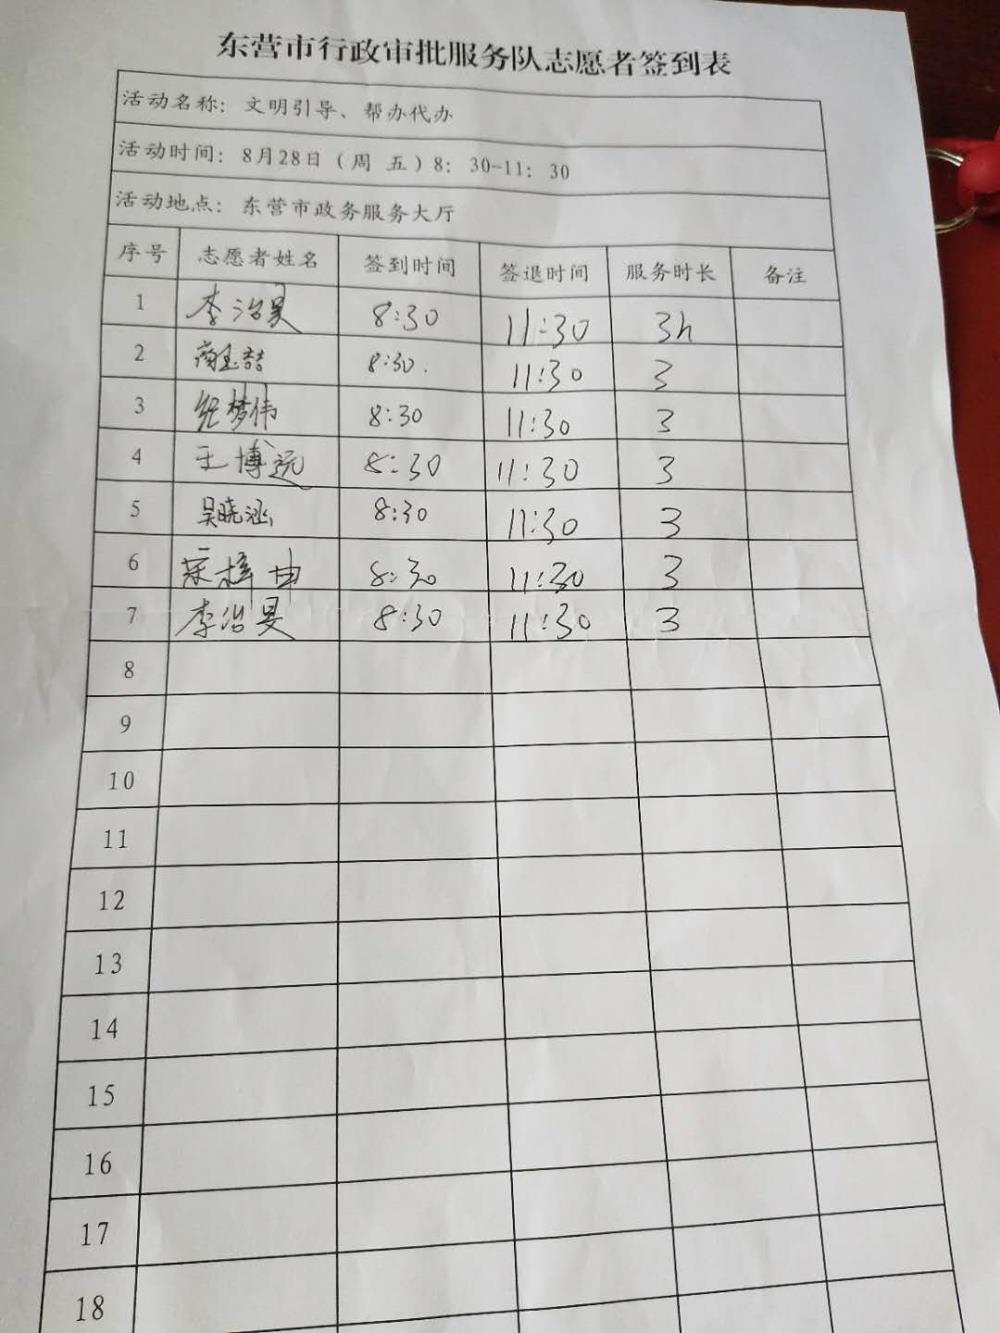 东营市行政审批服务队志愿者签到表
活动名称：文明引导、帮办代办
活动时间：8月28日（周 五）8：30-11：30
活动地点：东营市政务服务大厅
序号 志愿者姓名 签到时间 签退时间 服务时长 备注
1 李治昊 8:30 11:30 3h
2 8:30. 11:30 3
3 梦伟 8:30 11:30 3
4 王博远 8:30 11:30 3
5 吴晓涵 8:30 11:30 3
6 8:30 11:30 3
7 李治旻 8:30 11:30 3
8
9
10
11
12
13
14
15
16
17
18